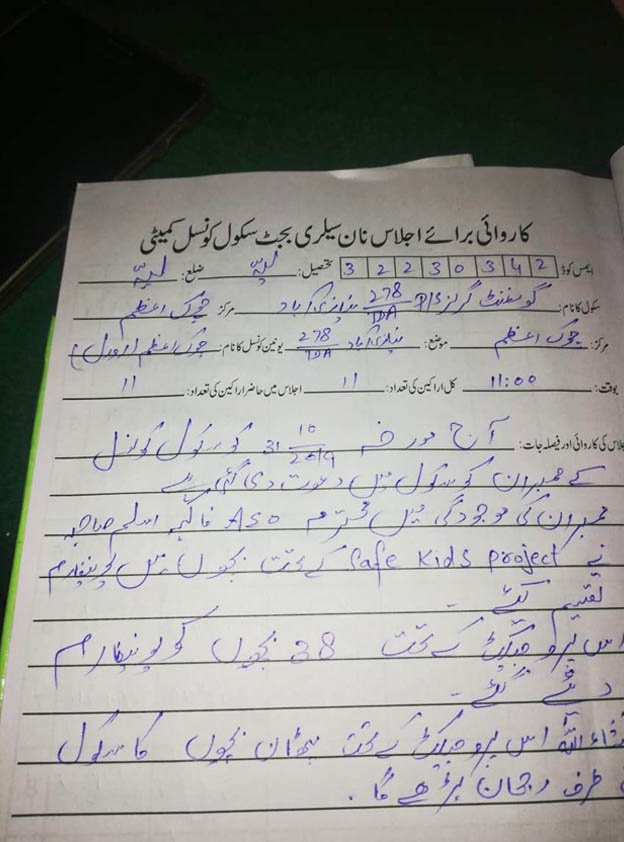 کاروائی برائے اجلاس نان سیلری بجٹ سکول کونسل کمیٹی
ایمس کوڈ 3 2 2 3 0 3 4 2 تحصیل: لیہ ضلع: لیہ
سکول کا نام: گورنمنٹ گرلز P/S 278/TDA آباد مرکز چوک اعظم
مرکز: چوک اعظم موضع: آباد 278/TDA یونین کونسل کا نام: چوک اعظم (رورل)
بوقت: 11:00 کل اراکین کی تعداد: 11 اجلاس میں حاضر اراکین کی تعداد: 11
جلاس کی کاروائی اور فیصلہ جات: آج مورخہ 31 10/2019 کو سکول کونسل
کے ممبران کو سکول میں دعوت دی گئی ہے
ممبران کی موجودگی میں محترم ASO اسلم صاحبہ
نے Safe Kids Project کے تحت بچوں میں یونیفارم
تقسیم کیے۔
اس پروجیکٹ کے تحت 38 بچوں کو یونیفارم
دیئے گئے۔
اللہ اس پروجیکٹ کے تحت بچوں کا سکول
طرف رجحان بڑھے گا۔